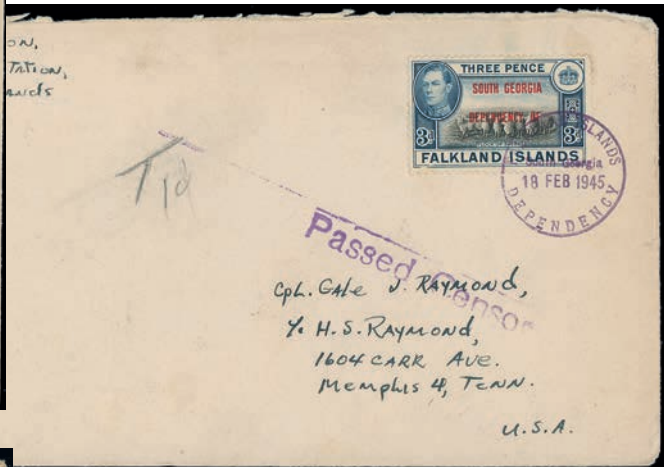 ON,
TATION,
ANDS
THREE PENCE
SOUTH GEORGIA
DEPENDENCY OF
3D 3D
FALKLAND ISLANDS
ISLANDS
South Georgia
18 FEB 1945
DEPENDENCY
T 1d
Passed Censor
CpL. GALe J. RAYMOND,
℅ H. S. RAYMOND,
1604 CARR AVE.
MempHis 4, TENN.
U.S.A.